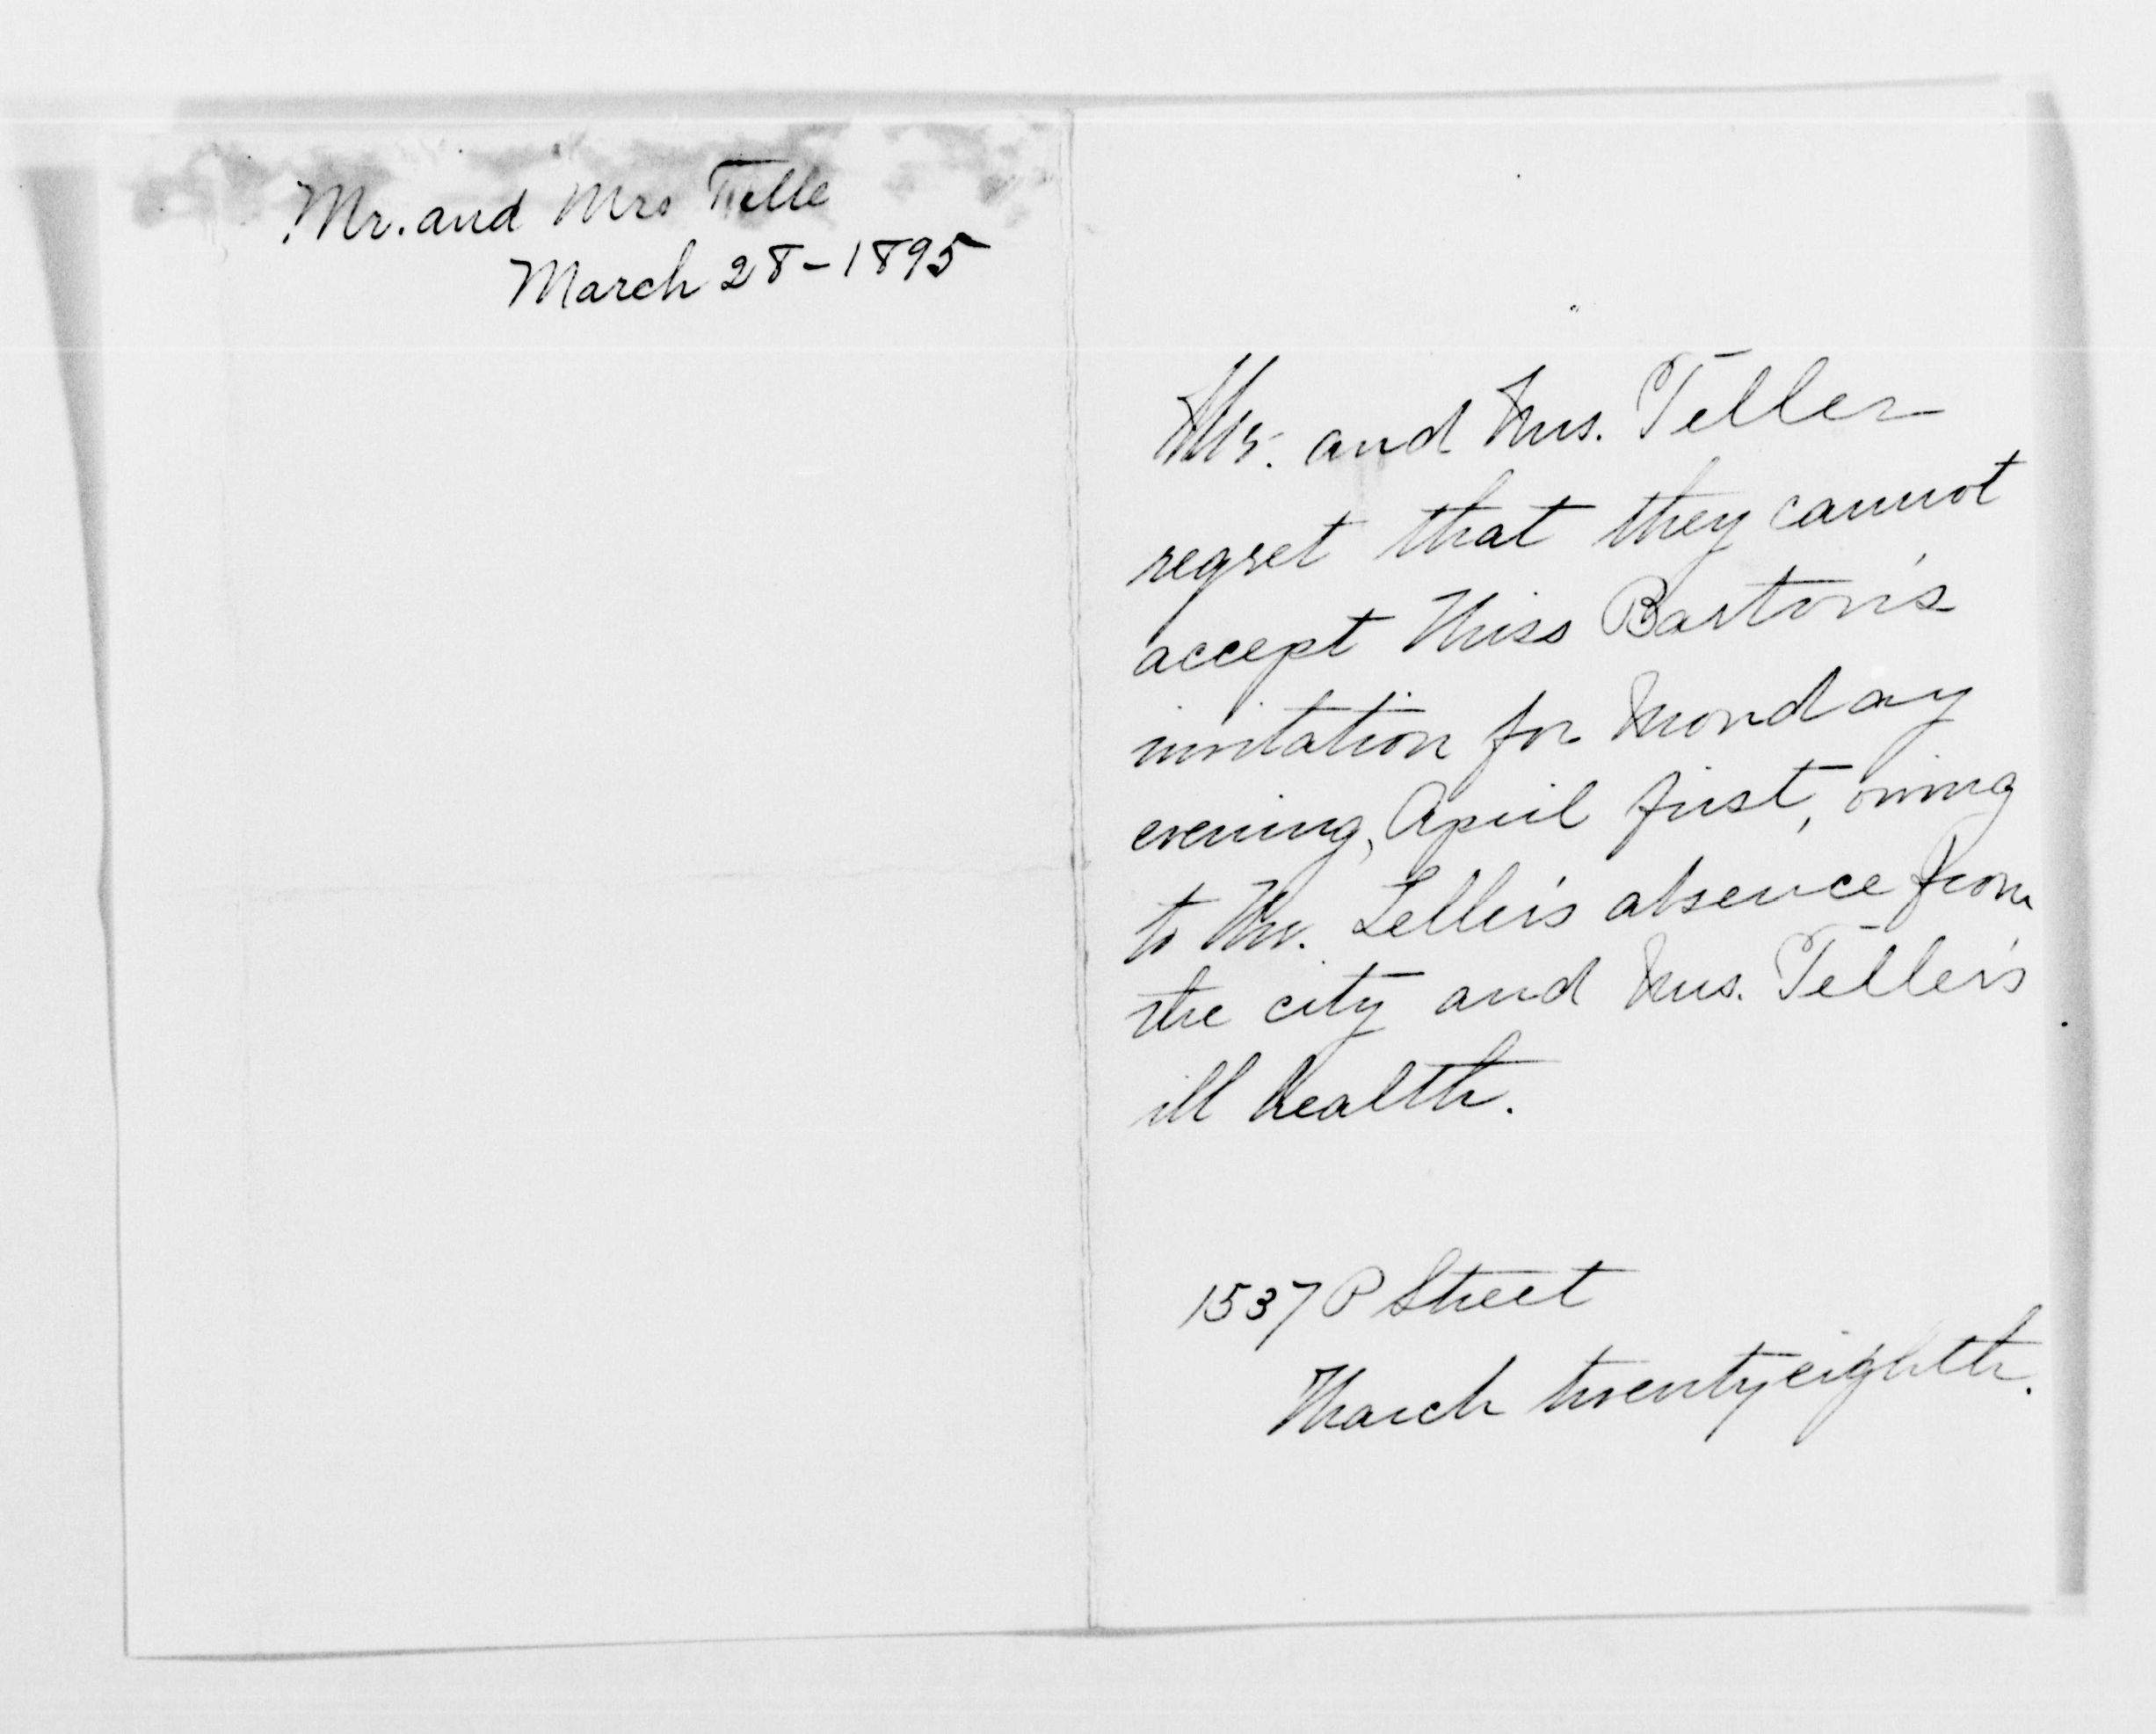 Mr. and Mrs Telle
March 28-1895
Mr. and Mrs. Teller
regret that they cannot
accept Miss Barton's
invitation for Monday
evening, April first, owing
to Mr. Teller's absence from
the city and Mrs. Teller's
ill health.
1537 P Street
March twenty eighth.